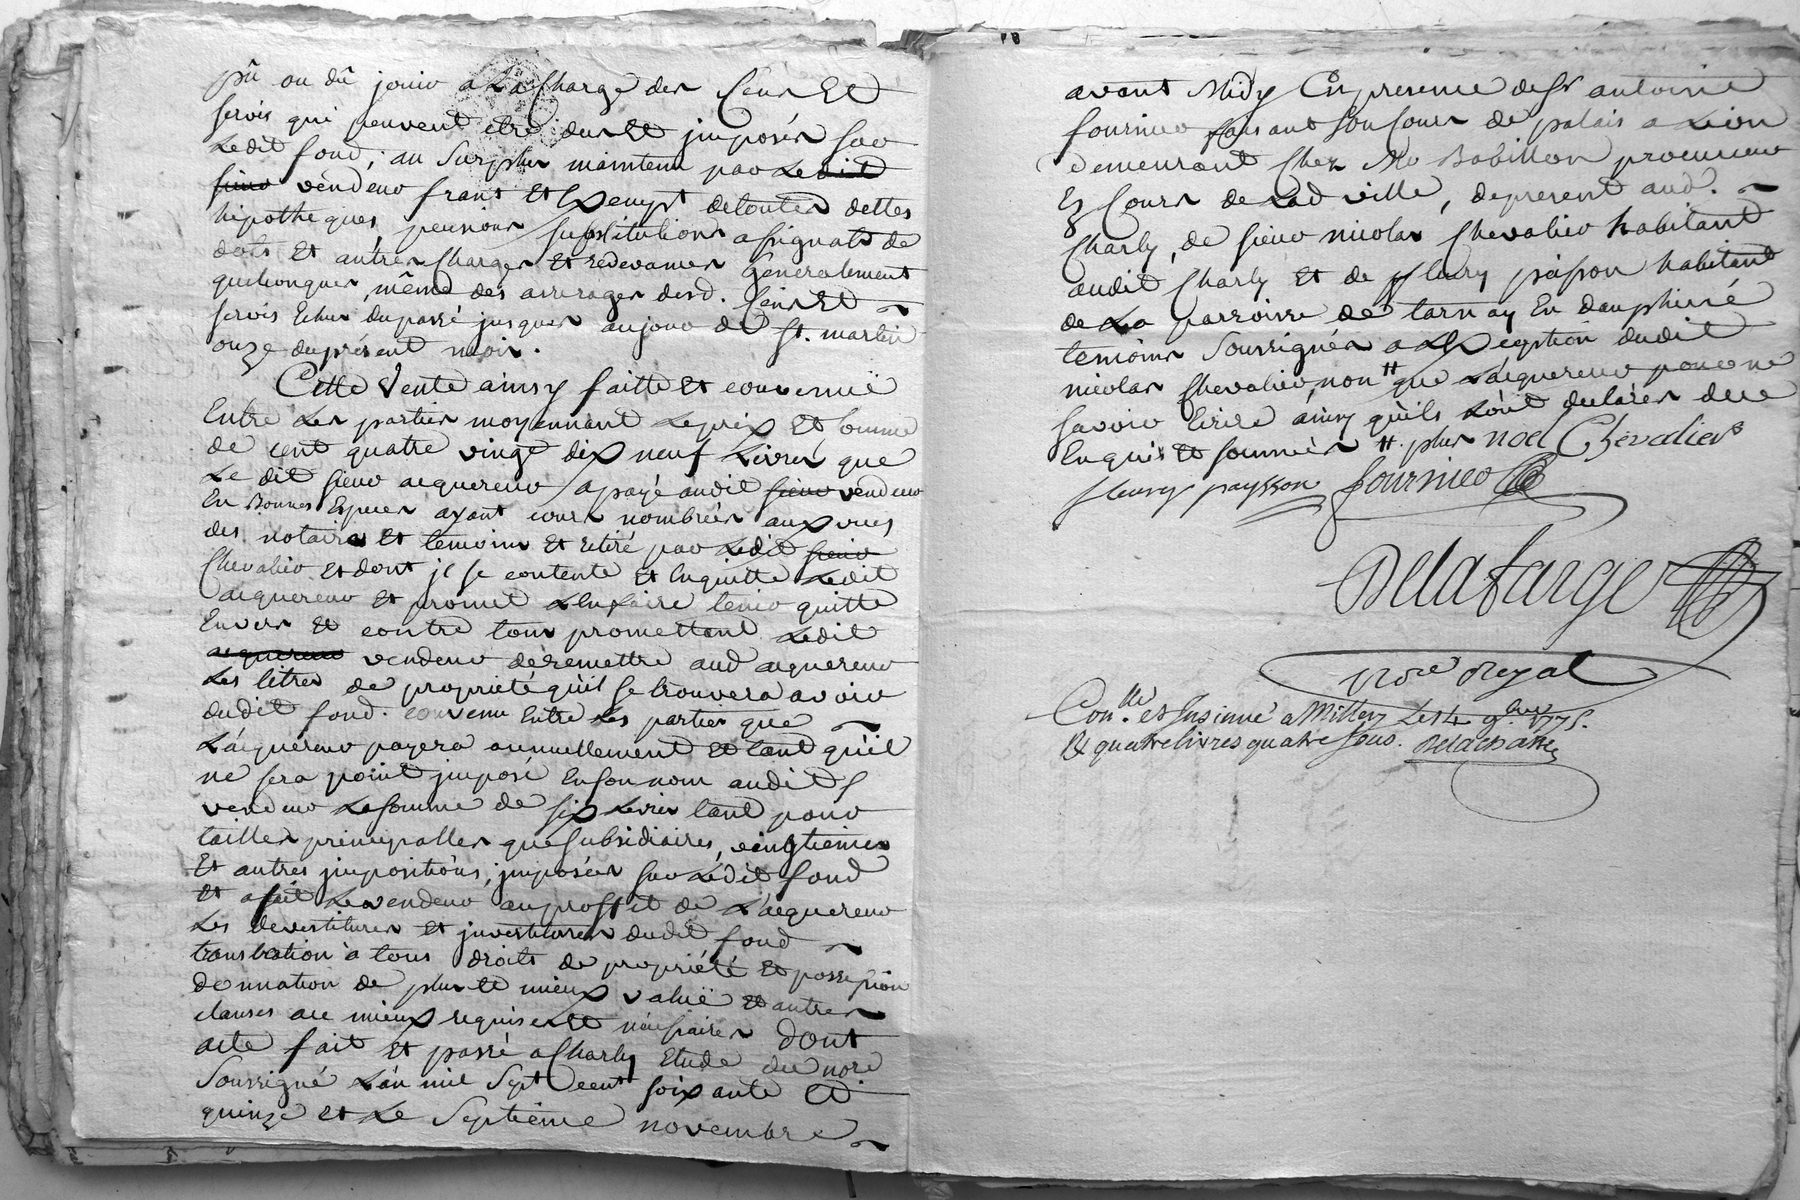 pû ou dû jouir a La Charge des Cens Et
servis qui peuvent etre dus Et jmposés sur
Ledit fond; au surplus maintenu par Ledit
sieur vendeur franc Et Exempt detoutes dettes
hipotheques, pensions substitutions assignats de
dots Et autres Charges Et redevances Generalement
quelconques, même des arrerages desd. Cens Et
servis Echus dupassé jusques aujour de St. martin
onze duprésent mois.
Cette Vente ainsy faitte Et convenuë
Entre Les parties moyennant Leprix Et somme
de cent quatre vingt dix neuf Livres que
Le dit sieur acquereur a payé audit sieur vendeur
En Bonnes Especes ayant cours nombrées aux vues
des notaire Et temoins Et retiré par Ledit sieur
Chevalier Et dont jl se contente Et Enquitte Ledit
acquereur Et promet L'en faire tenir quitte
Envers Et contre tous promettant Ledit
acquereur vendeur deremettre aud acquereur
Les titres de propriété qu'il se trouvera avoir
dudit fond. convenu Entre Les parties que
L'acquereur payera annuellement Et tant qu'il
ne sera point jmposé Enson nom audit
vendeur La somme de six Livres tant pour
tailles principalles que subsidiaires, vingtiemes
Et autres jmpositions, jmposées sur Ledit fond
Et a fait Le vendeur, auproffit de L'acquereur
Les devestitures Et jnvestitures dudit fond
translation à tous droits de propriété Et possession
donnation de plus Et mieux value Et autres
clauses au mieux requises Et nécessaires Dont
acte fait Et passé a Charly Etude du nore
Soussigné L'an mil Sept Cent soixante Et
quinze Et Le Septième novembre
avant Midy En presence de sr antoine
fournier faisant son Cours de palais a Lion
demeurant Chez Me Babillon procureur
Ez Cours de Lad ville, depresent aud.
Charly, de sieur nicolas Chevalier habitant
audit Charly Et de fleury païsson habitant
de La parroisse de ternay En Dauphiné
temoins Soussignés a L'Exception dudit
nicolas Chevalier, non # que L'acquereur pour ne
savoir Ecrire ainsy qu'ils L'ont declarés de ce
Enquis Et sommés # plus noel Chevalier
fleury paysson fournier
Delafarge
nore Royal
Con.lle et Insinué a Millery Le 14 9bre 1775.
R quatre livres quatre sous. Deladhasse